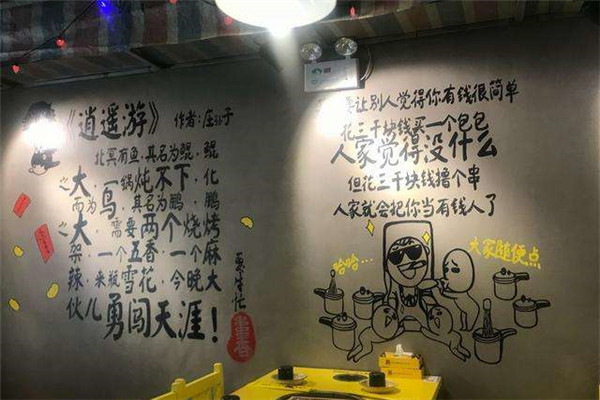 《逍遥游》 作者:庄子
北冥有鱼,其名为鲲,鲲
之大,一锅炖不下,化
而为鸟,其名为鹏,鹏
之大,需要两个烧烤
架,一个五香,一个麻
辣,来瓶雪花,今晚大
伙儿勇闯天涯!
串香
让别人觉得你有钱很简单
花三千块钱买一个包包
人家觉得没什么
但花三千块钱撸个串
人家就会把你当有钱人了
哈哈…
大家随便点